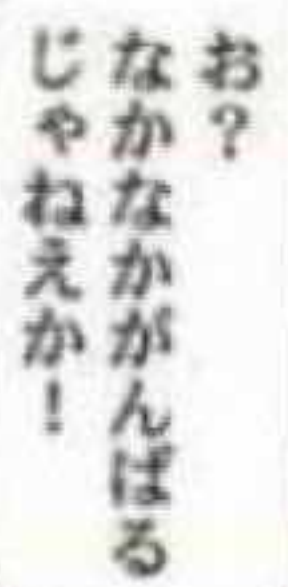 お？
なかなかがんばる
じゃねえか！